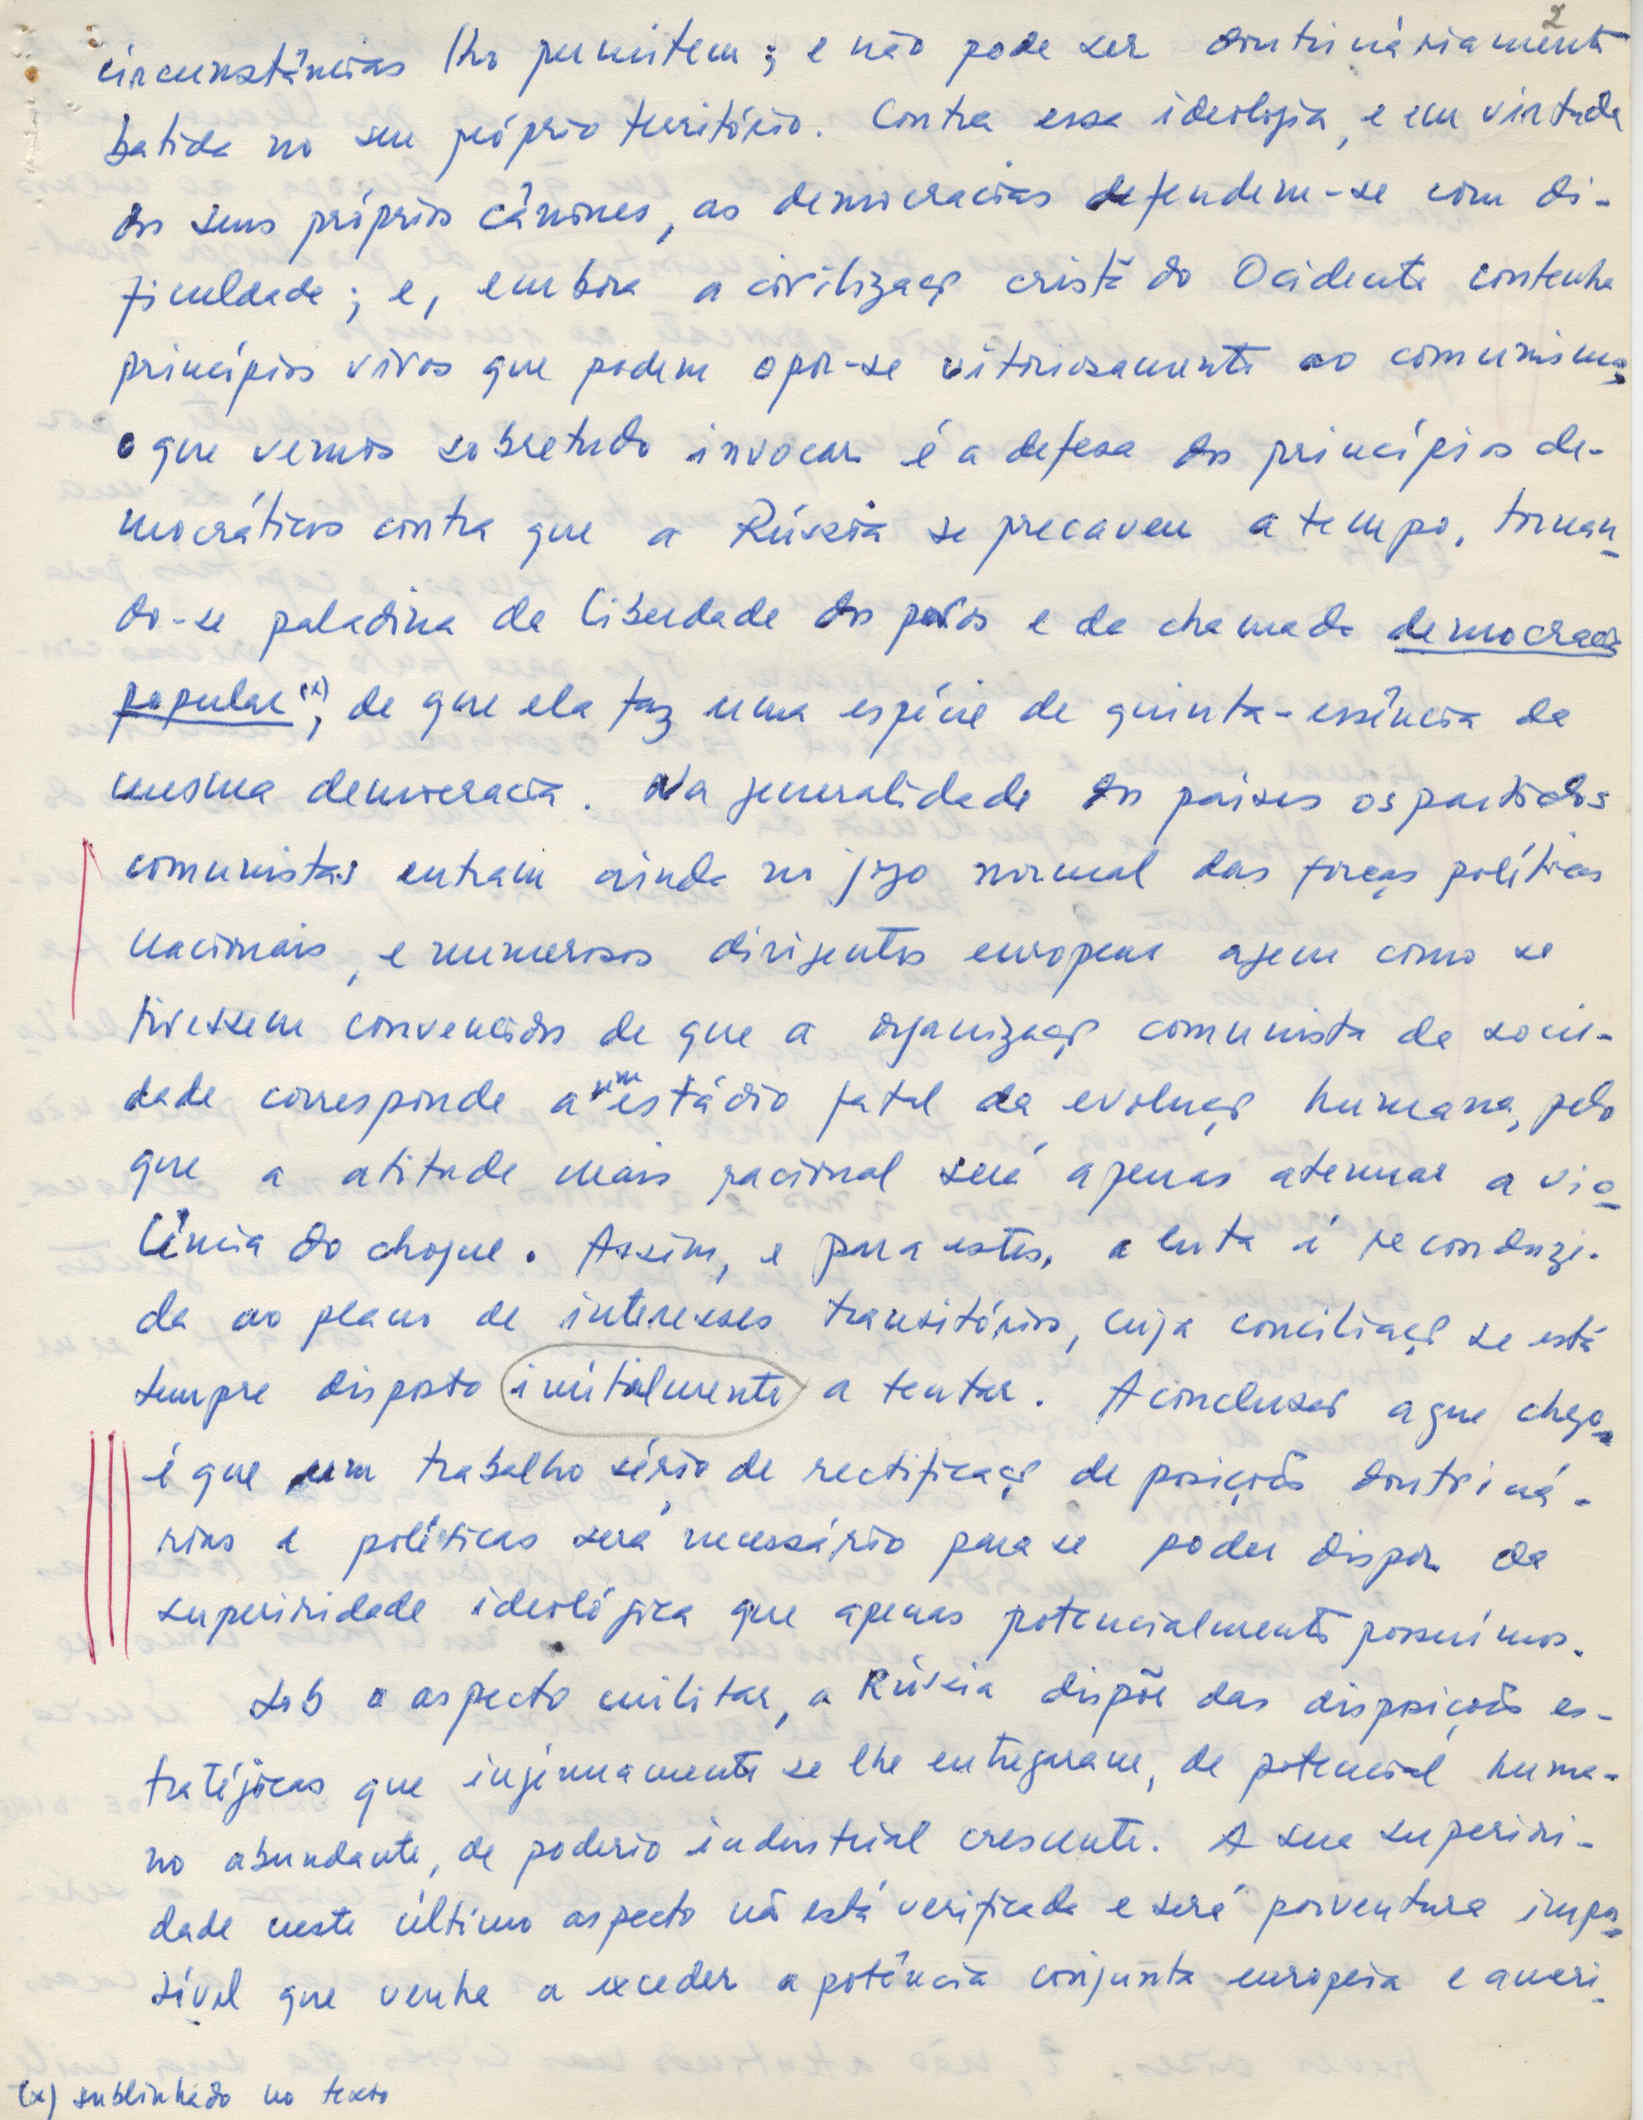 2
circunstâncias lho permitem; e não pode ser doutrináriamente
batida no seu próprio território. Contra essa ideologia, e em virtude
dos seus próprios cânones, as democracias defendem-se com di-
ficuldade; e, embora a civilizaçã cristã do Ocidente contenha
princípios vivos que podem opor-se vitoriosamente ao comunismo,
o que vemos sobretudo invocar é a defesa dos princípios de-
mocráticos contra que a Rússia se precaveu a tempo, tornan-
do-se paladina da liberdade dos povos e da chamada democracia
popular (x), de que ela faz uma espécie de quinta-essência da
mesma democracia. Na generalidade dos países os partidos
comunistas entram ainda no jogo normal das forças políticas
nacionais, e numerosos dirigentes europeus agem como se
tivessem convencidos de que a organizaçã comunista da socie-
dade corresponde a um estádio fatal da evoluçã humana, pelo
que a atitude mais racional será apenas atenuar a vio-
lência do choque. Assim, e para estes, a luta é reconduzi-
da ao plano de interesses transitórios, cuja conciliaçã se está
sempre disposto inùtilmente a tentar. A conclusã a que chego
é que um trabalho sério de rectificaçã de posições doutriná-
rias e políticas será necessário para se poder dispor da
superioridade ideológica que apenas potencialmente possuímos.
Sob o aspecto militar, a Rússia dispõe das disposições es-
tratégicas que ingènuamente se lhe entregaram, de potencial huma-
no abundante, de poderio industrial crescente. A sua superiori-
dade neste último aspecto nã está verificada e será porventura impos-
sível que venha a exceder a potência conjunta europeia e ameri-
(x) sublinhado no texto